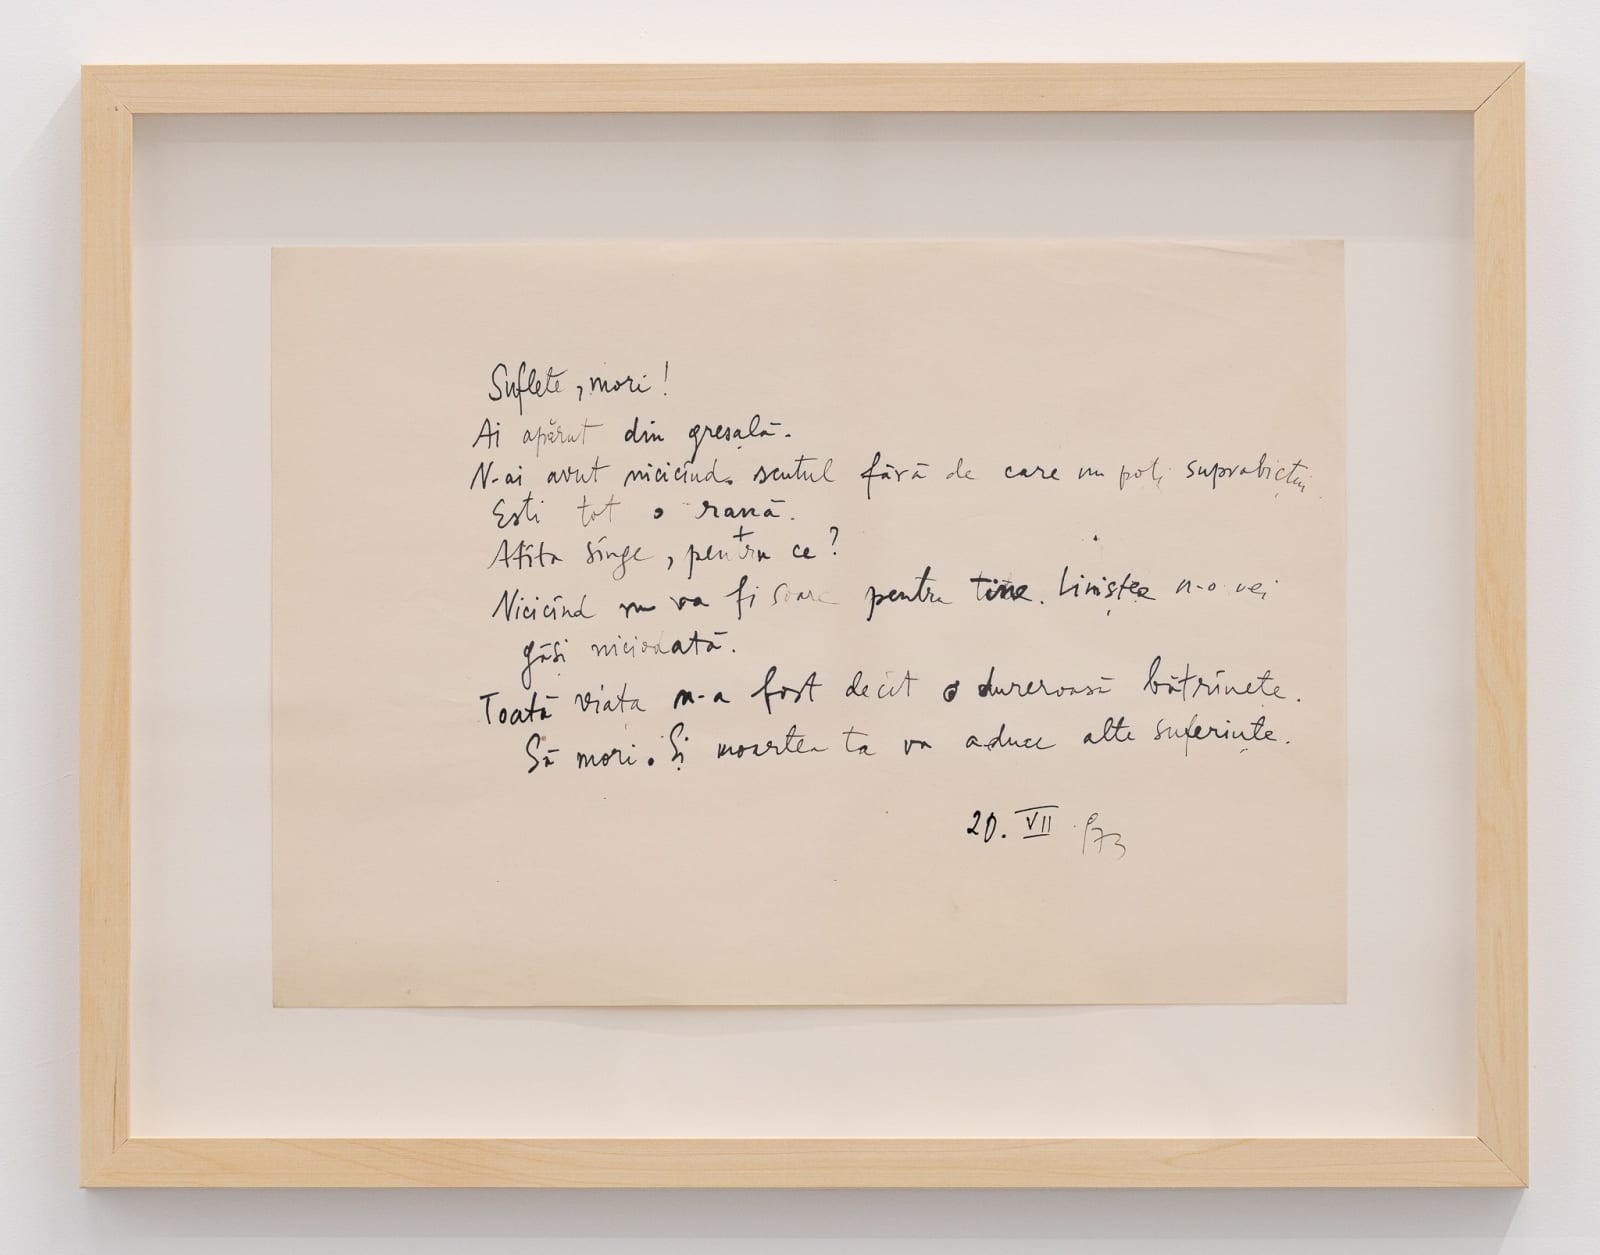 Suflete, mori!
Ai apărut din greșală.
N-ai avut nicicînd scutul fără de care nu poți supraviețui.
Ești tot o rană.
Atîta sînge, pentru ce?
Nicicînd nu va fi soare pentru tine. Liniștea n-o vei
găsi niciodată.
Toată viața n-a fost decît o dureroasă bătrînețe.
Să mori. Și moartea ta va aduce alte suferințe.
20. VII 973